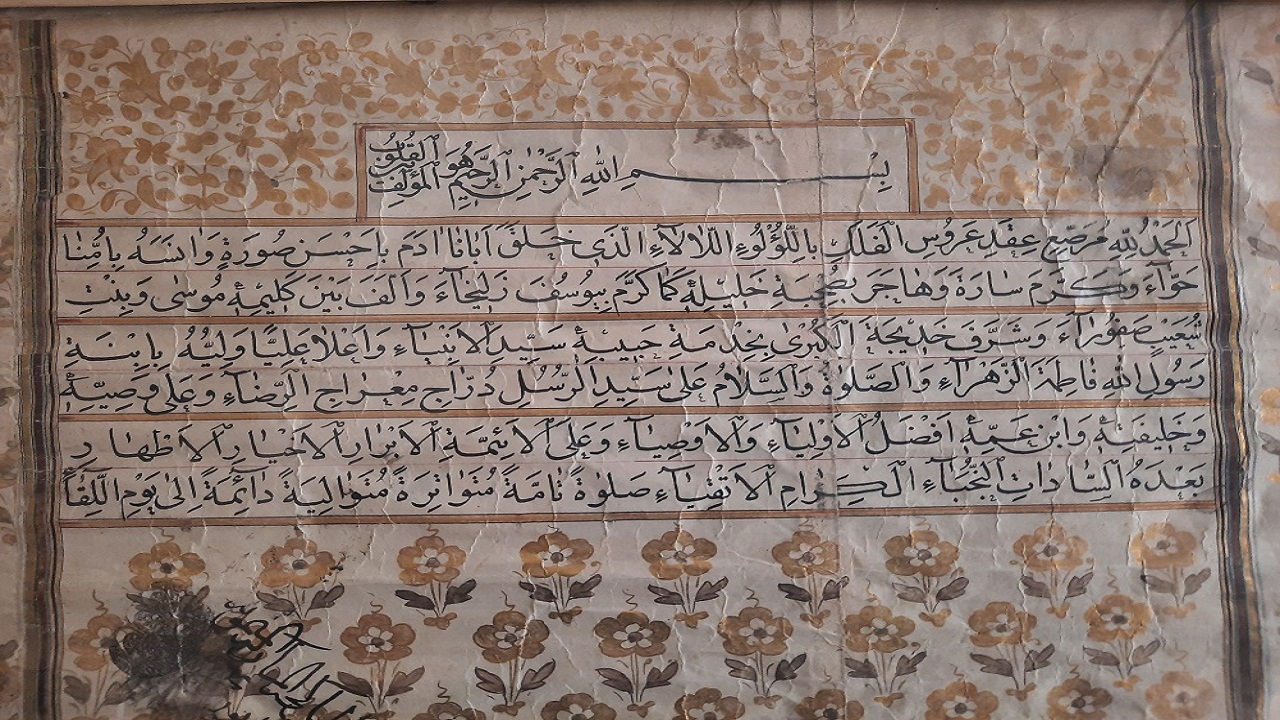 بِسْمِ اللهِ الرَّحْمٰنِ الرَّحِيمِ هُوَ الْمُؤَلِّفُ بَيْنَ الْقُلُوبِ
اَلْحَمْدُ لِلّٰهِ مُرَصِّعِ عِقْدِ عَرُوسِ الْفَلَكِ بِاللُّؤْلُوءِ اللَّالَاءِ الَّذِي خَلَقَ اَبَانَا اٰدَمَ بِاَحْسَنِ صُورَةٍ وَاٰنَسَهُ بِاُمِّنَا
حَوَّاءَ وَكَرَّمَ سَارَةَ وَهَاجَرَ بِصُحْبَةِ خَلِيلِهِ كَمَا كَرَّمَ بِيُوسُفَ زَلِيخَاءَ وَاَلَّفَ بَيْنَ كَلِيمِهِ مُوسٰى وَبِنْتِ
شُعَيْبٍ صَفُورَاءَ وَشَرَّفَ خَدِيجَةَ الْكُبْرٰى بِخِدْمَةِ حَبِيبِهِ سَيِّدِ الْاَنْبِيَاءِ وَاَعْلَا عَلِيًّا وَلِيَّهُ بِاِبْنَةِ
رَسُولِ اللهِ فَاطِمَةَ الزَّهْرَاءِ وَالصَّلٰوةُ وَالسَّلَامُ عَلٰى سَيِّدِ الرُّسُلِ دُرَّاجِ مِعْرَاجِ الرِّضَاءِ وَعَلٰى وَصِيِّهِ
وَخَلِيفَتِهِ وَابْنِ عَمِّهِ اَفْضَلُ الْاَوْلِيَاءِ وَالْاَوْصِيَاءِ وَعَلَى الْاَئِمَّةِ الْاَبْرَارِ الْاَخْيَارِ الْاَطْهَارِ
بَعْدَهُ السَّادَاتِ النُّجَبَاءِ الْكِرَامِ الْاَتْقِيَاءِ صَلٰوةً تَامَّةً مُتَوَاتِرَةً مُتَوَالِيَةً دَائِمَةً اِلٰى يَوْمِ اللِّقَاءِ